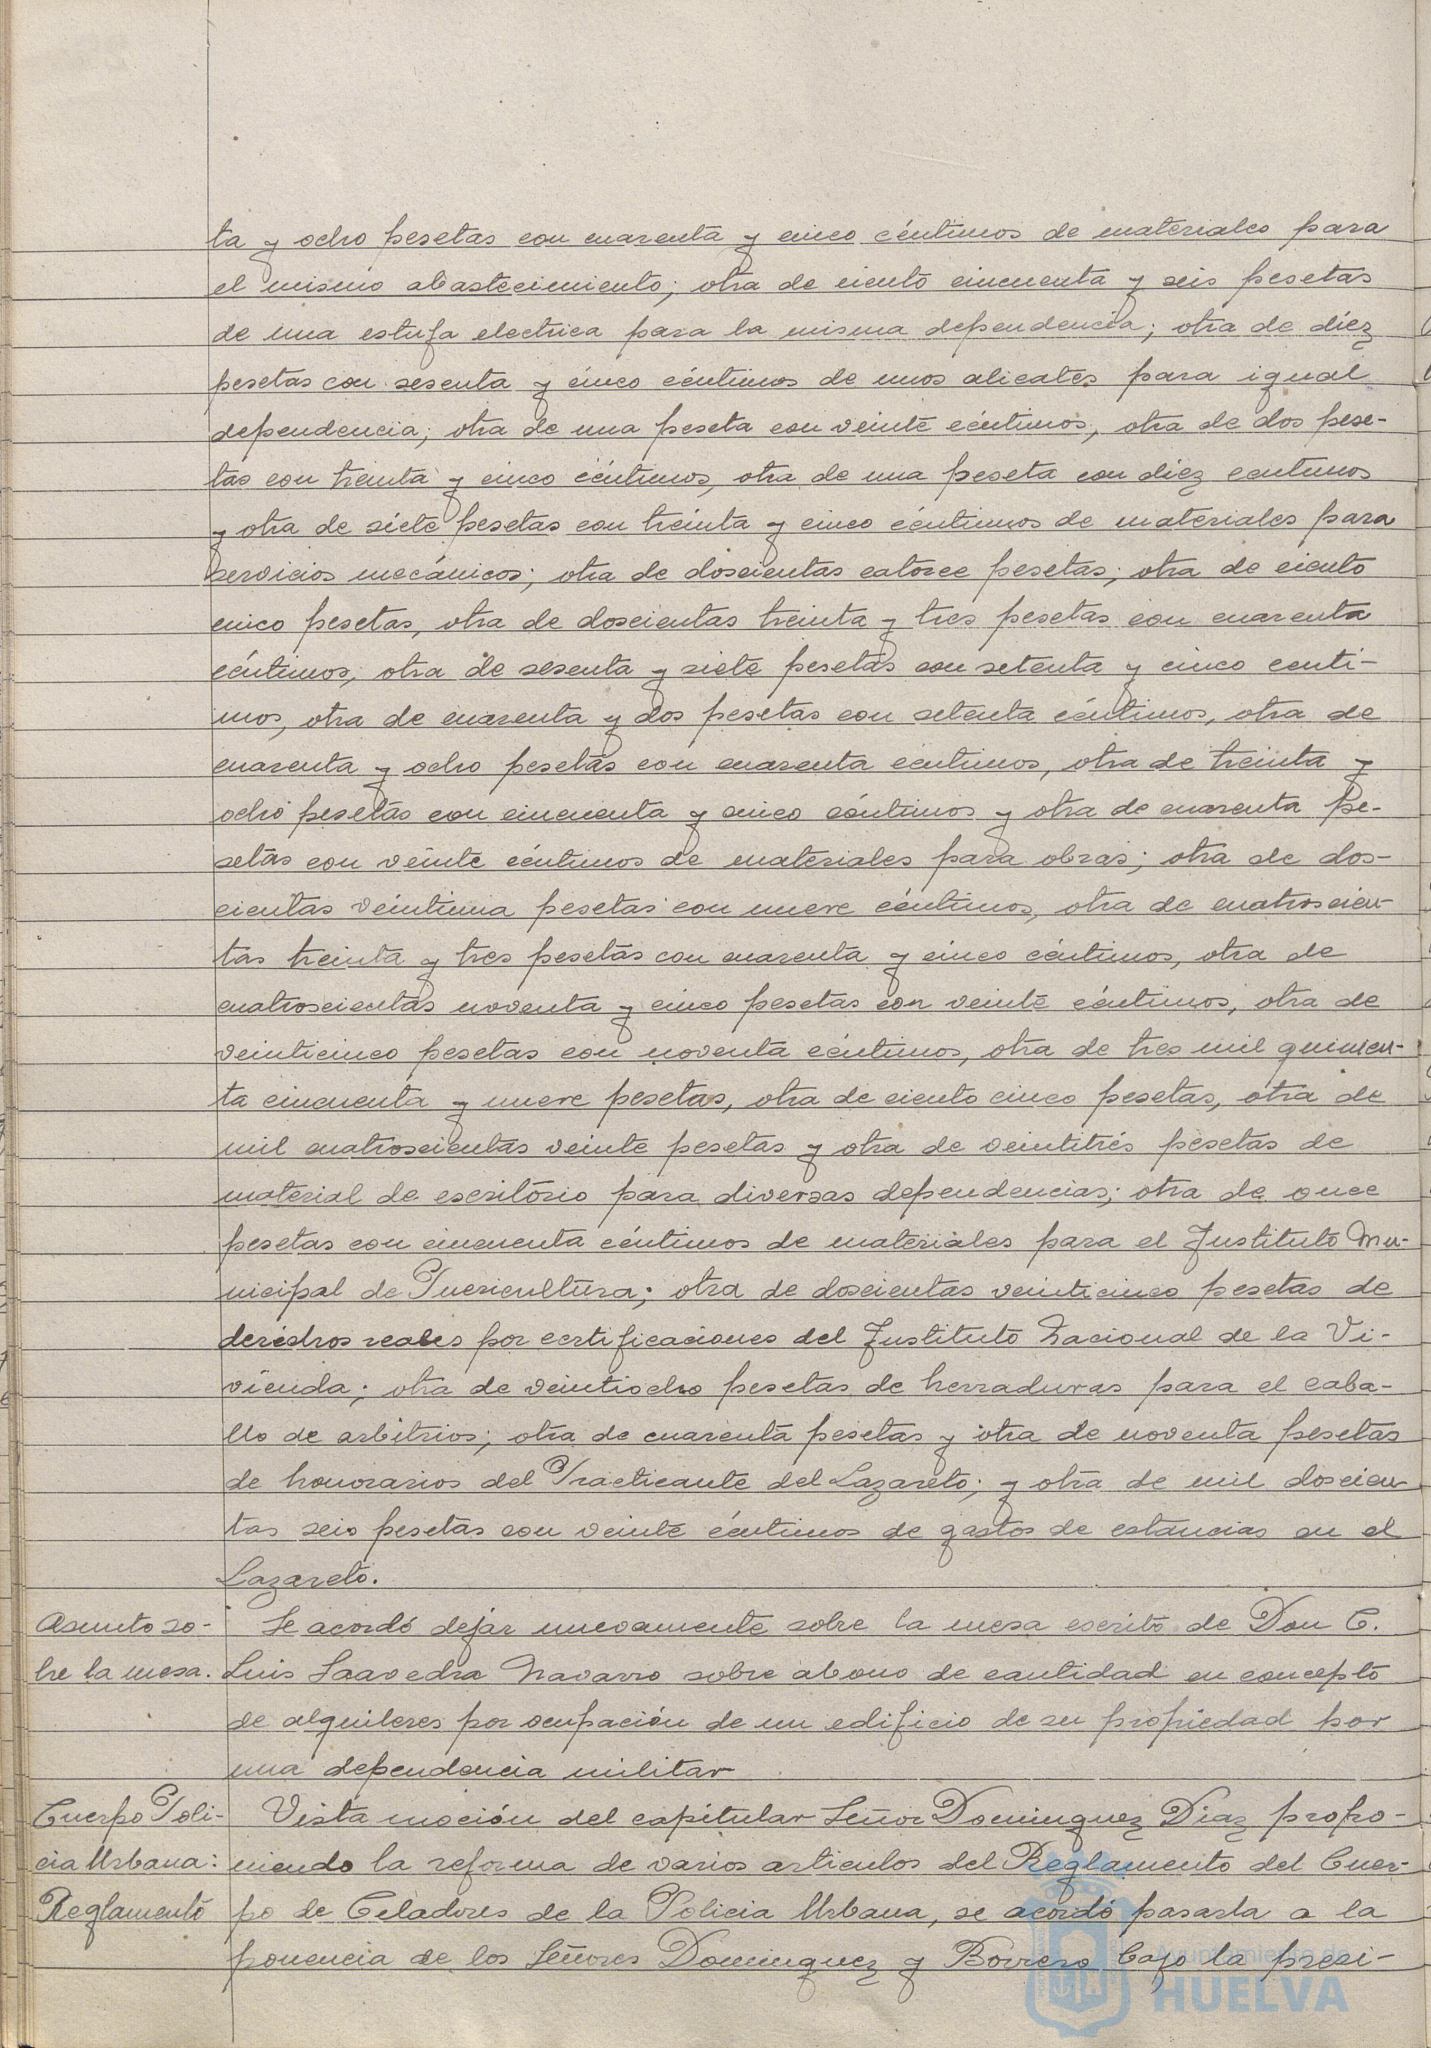 ta y ocho pesetas con cuarenta y cinco céntimos de materiales para
el mismo abastecimiento; otra de ciento cincuenta y seis pesetas
de una estufa electrica para la misma dependencia; otra de diez
pesetas con sesenta y cinco céntimos de unos alicates para igual
dependencia; otra de una peseta con veinte céntimos, otra de dos pese-
tas con treinta y cinco céntimos, otra de una peseta con diez centimos
y otra de siete pesetas con treinta y cinco céntimos de materiales para
servicios mecánicos; otra de doscientas catorce pesetas; otra de ciento
cinco pesetas, otra de doscientas treinta y tres pesetas con cuarenta
céntimos, otra de sesenta y siete pesetas con setenta y cinco centi-
mos, otra de cuarenta y dos pesetas con setenta céntimos, otra de
cuarenta y ocho pesetas con cuarenta céntimos, otra de treinta y
ocho pesetas con cincuenta y cinco céntimos y otra de cuarenta pe-
setas con veinte céntimos de materiales para obras; otra de dos-
cientas veintiuna pesetas con nueve céntimos, otra de cuatroscien-
tas treinta y tres pesetas con cuarenta y cinco céntimos, otra de
cuatroscientas noventa y cinco pesetas con veinte céntimos, otra de
veinticinco pesetas con noventa céntimos, otra de tres mil quinien-
ta cincuenta y nueve pesetas, otra de ciento cinco pesetas, otra de
mil cuatroscientas veinte pesetas y otra de veintitrés pesetas de
material de escritório para diversas dependencias; otra de once
pesetas con cincuenta céntimos de materiales para el Instituto Mu-
nicipal de Puericultura; otra de doscientas veinticinco pesetas de
derechos reales por certificaciones del Instituto Nacional de la Vi-
vienda; otra de veintiocho pesetas de herraduras para el caba-
llo de arbitrios; otra de cuarenta pesetas y otra de noventa pesetas
de honorarios del Practicante del Lazareto; y otra de mil doscien-
tas seis pesetas con veinte céntimos de gastos de estancias en el
Lazareto.
Asunto so-
bre la mesa.
Se acordó dejar nuevamente sobre la mesa escrito de Don C.
Luis Saavedra Navarro sobre abono de cantidad en concepto
de alquileres por ocupación de un edificio de su propiedad por
una dependencia militar
Cuerpo Poli-
cia Urbana:
Reglamento
Vista moción del capitular Señor Dominguez Diaz propo-
niendo la reforma de varios articulos del Reglamento del Cuer-
po de Celadores de la Policia Urbana, se acordó pasarla a la
ponencia de los Señores Dominguez y Borrero bajo la presi-
Ayuntamiento de
HUELVA